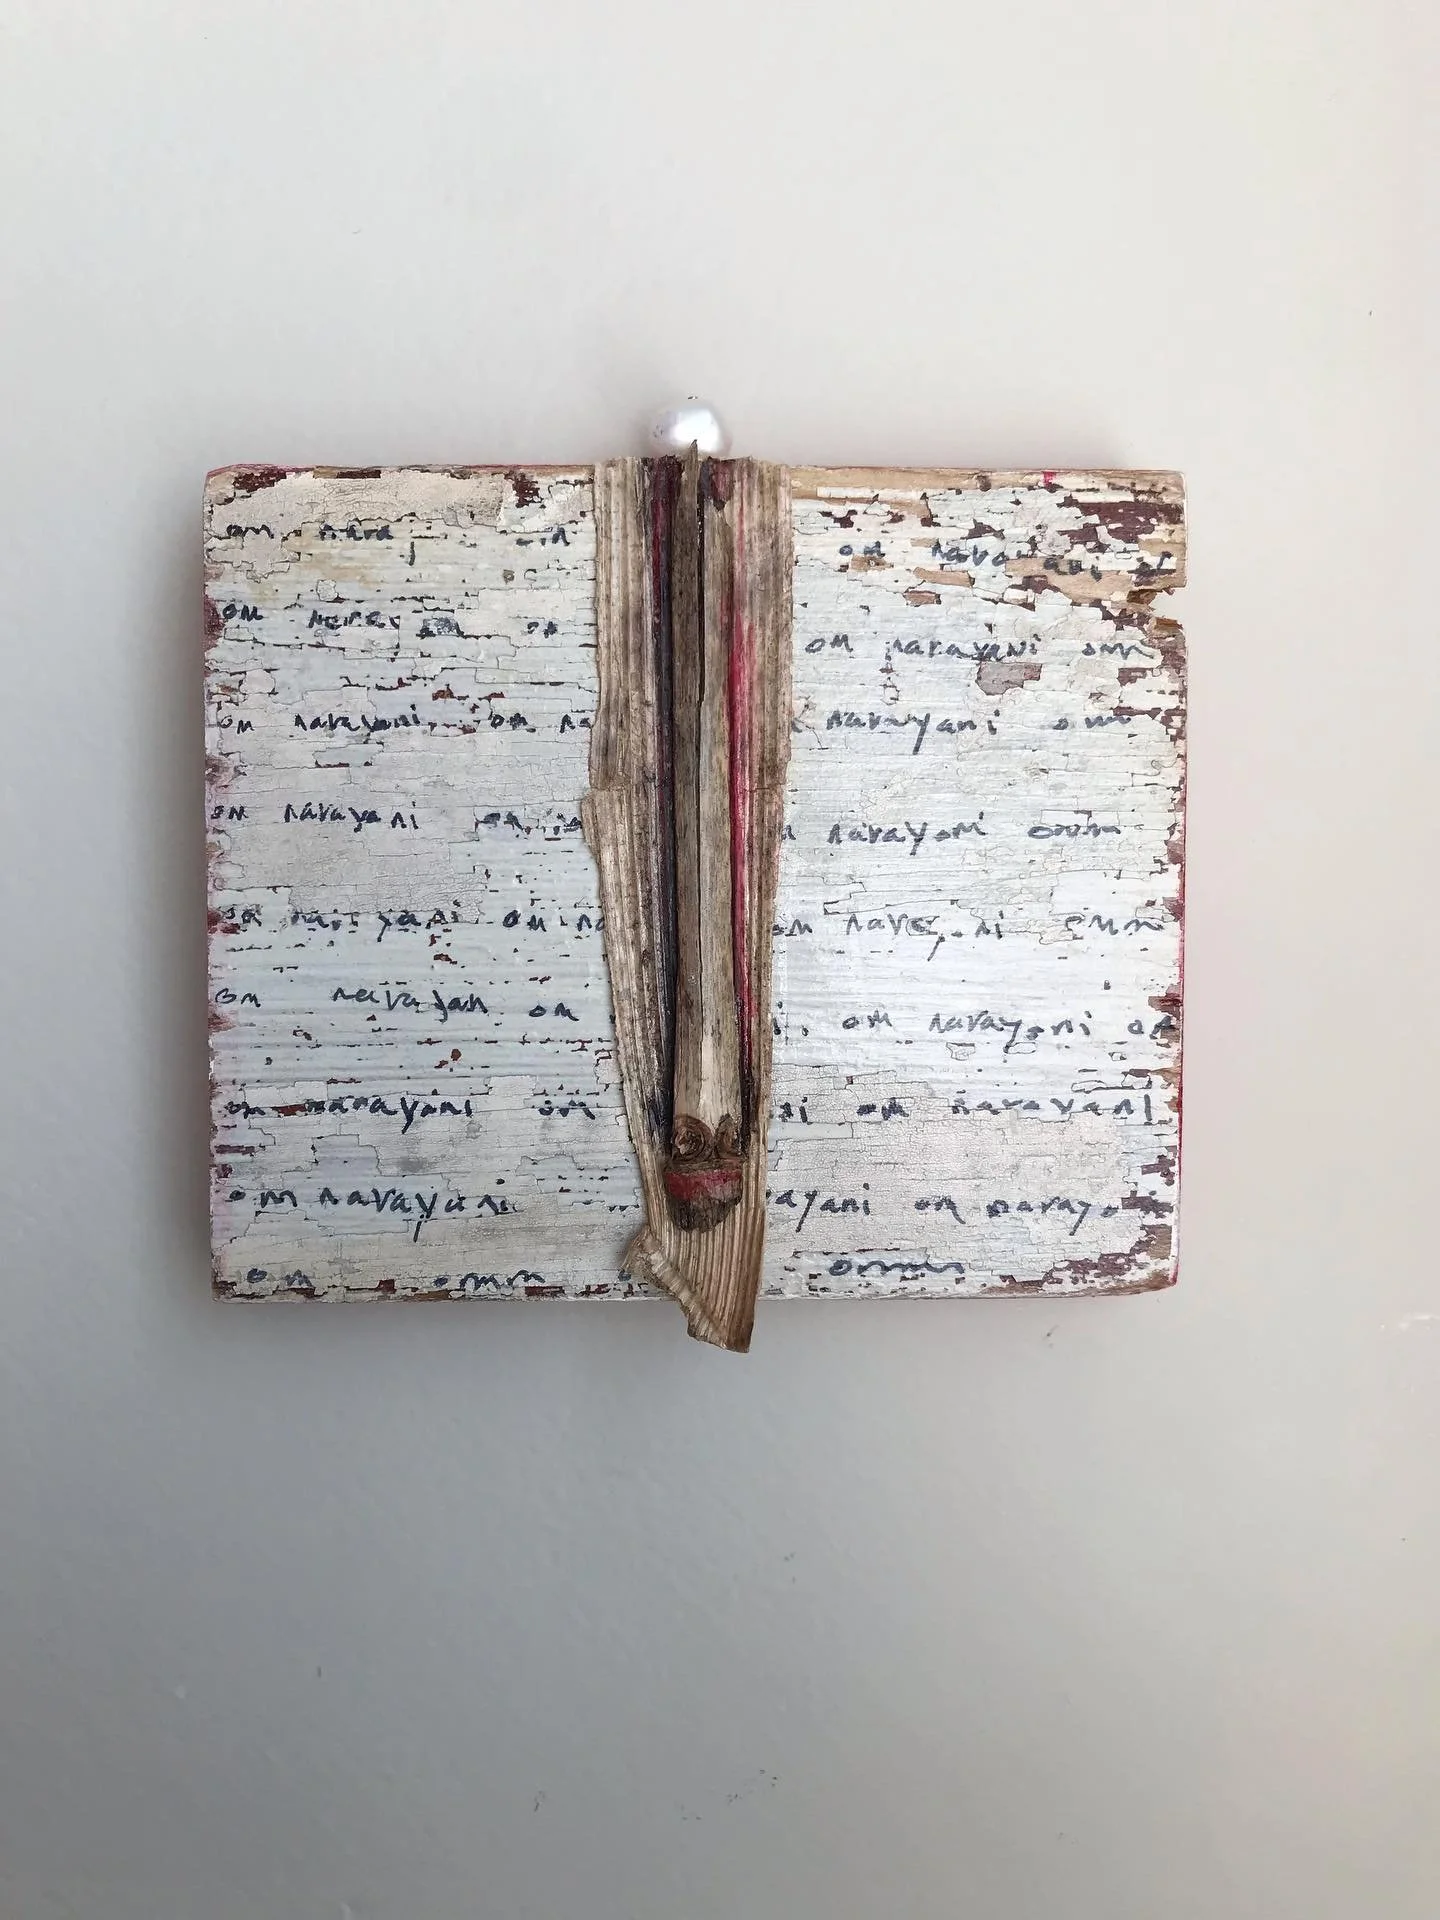 om nara om narayani
om om om narayani omm
om narayani om na narayani omm
om narayani om narayani omm
yani om na om ni omm
om narayan om om narayani om
om narayani om ni om narayani
om narayani ayani om naray
om ommm ommm